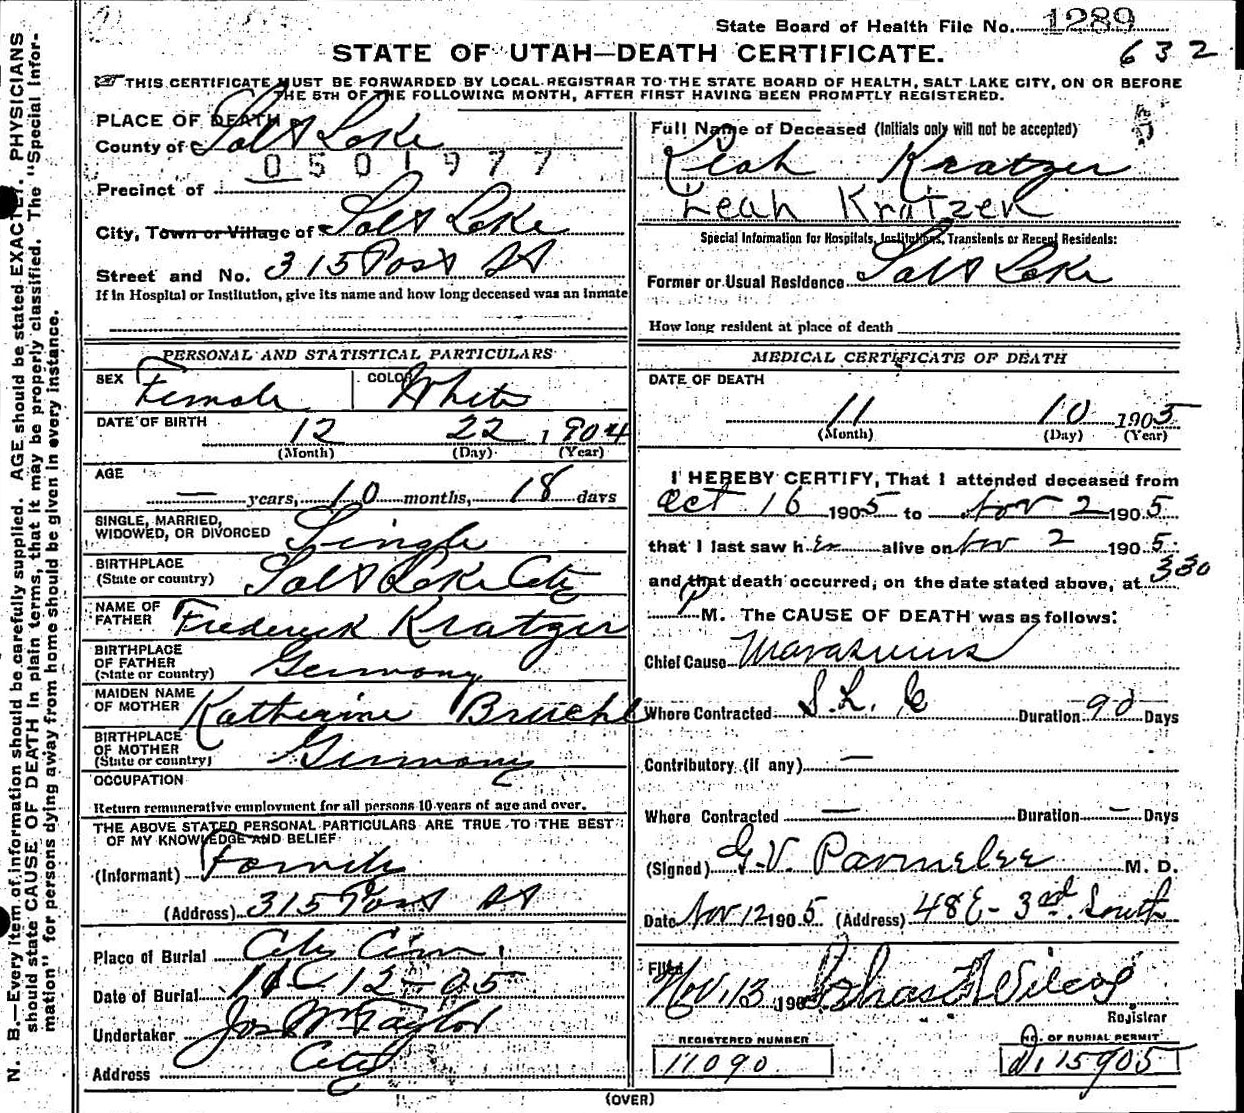 State Board of Health File No. 1289
632
STATE OF UTAH—DEATH CERTIFICATE.
THIS CERTIFICATE MUST BE FORWARDED BY LOCAL REGISTRAR TO THE STATE BOARD OF HEALTH, SALT LAKE CITY, ON OR BEFORE
THE 5TH OF THE FOLLOWING MONTH, AFTER FIRST HAVING BEEN PROMPTLY REGISTERED.
N. B.—Every item of information should be carefully supplied. AGE should be stated EXACTLY. PHYSICIANS
should state CAUSE OF DEATH in plain terms, that it may be properly classified. The "Special Infor-
mation" for persons dying away from home should be given in every instance.
PLACE OF DEATH
County of Salt Lake
0501977
Precinct of
City, Town or Village of Salt Lake
Street and No. 315 Post St
If in Hospital or Institution, give its name and how long deceased was an Inmate
PERSONAL AND STATISTICAL PARTICULARS
SEX Female COLOR White
DATE OF BIRTH 12 22, 1904
(Month) (Day) (Year)
AGE
— years, 10 months, 18 days
SINGLE, MARRIED,
WIDOWED, OR DIVORCED Single
BIRTHPLACE
(State or country) Salt Lake City
NAME OF
FATHER Frederick Kratzer
BIRTHPLACE
OF FATHER
(State or country) Germany
MAIDEN NAME
OF MOTHER Katherine Bruehl
BIRTHPLACE
OF MOTHER
(State or country) Germany
OCCUPATION
Return remunerative employment for all persons 10 years of age and over.
THE ABOVE STATED PERSONAL PARTICULARS ARE TRUE TO THE BEST
OF MY KNOWLEDGE AND BELIEF
(Informant) Family
(Address) 315 Post St
Place of Burial City Cem
Date of Burial 12-05
Undertaker Jos Wm Taylor
Address City
Full Name of Deceased (Initials only will not be accepted)
Leah Kratzer
Leah Kratzer
Special Information for Hospitals, Institutions, Transients or Recent Residents:
Former or Usual Residence Salt Lake
How long resident at place of death
MEDICAL CERTIFICATE OF DEATH
DATE OF DEATH
11 10 1905
(Month) (Day) (Year)
I HEREBY CERTIFY, That I attended deceased from
Oct 16 1905 to Nov 2 1905
that I last saw her alive on Nov 2 1905
and that death occurred, on the date stated above, at 330
P M. The CAUSE OF DEATH was as follows:
Chief Cause Marasmus
Where Contracted S. L. C Duration 90 Days
Contributory (if any) —
Where Contracted — Duration — Days
(Signed) G. V. Parmelee M. D.
Date Nov 12 1905 (Address) 48 E - 3rd South
Filed
Nov. 13 190 Wilcox
Registrar
REGISTERED NUMBER NO. OF BURIAL PERMIT
11090 D.15905
(OVER)